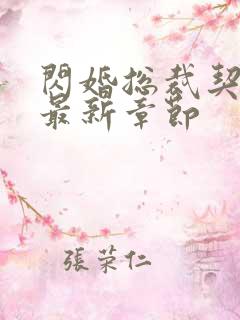 閃婚总裁契
最新章節
張荣仁